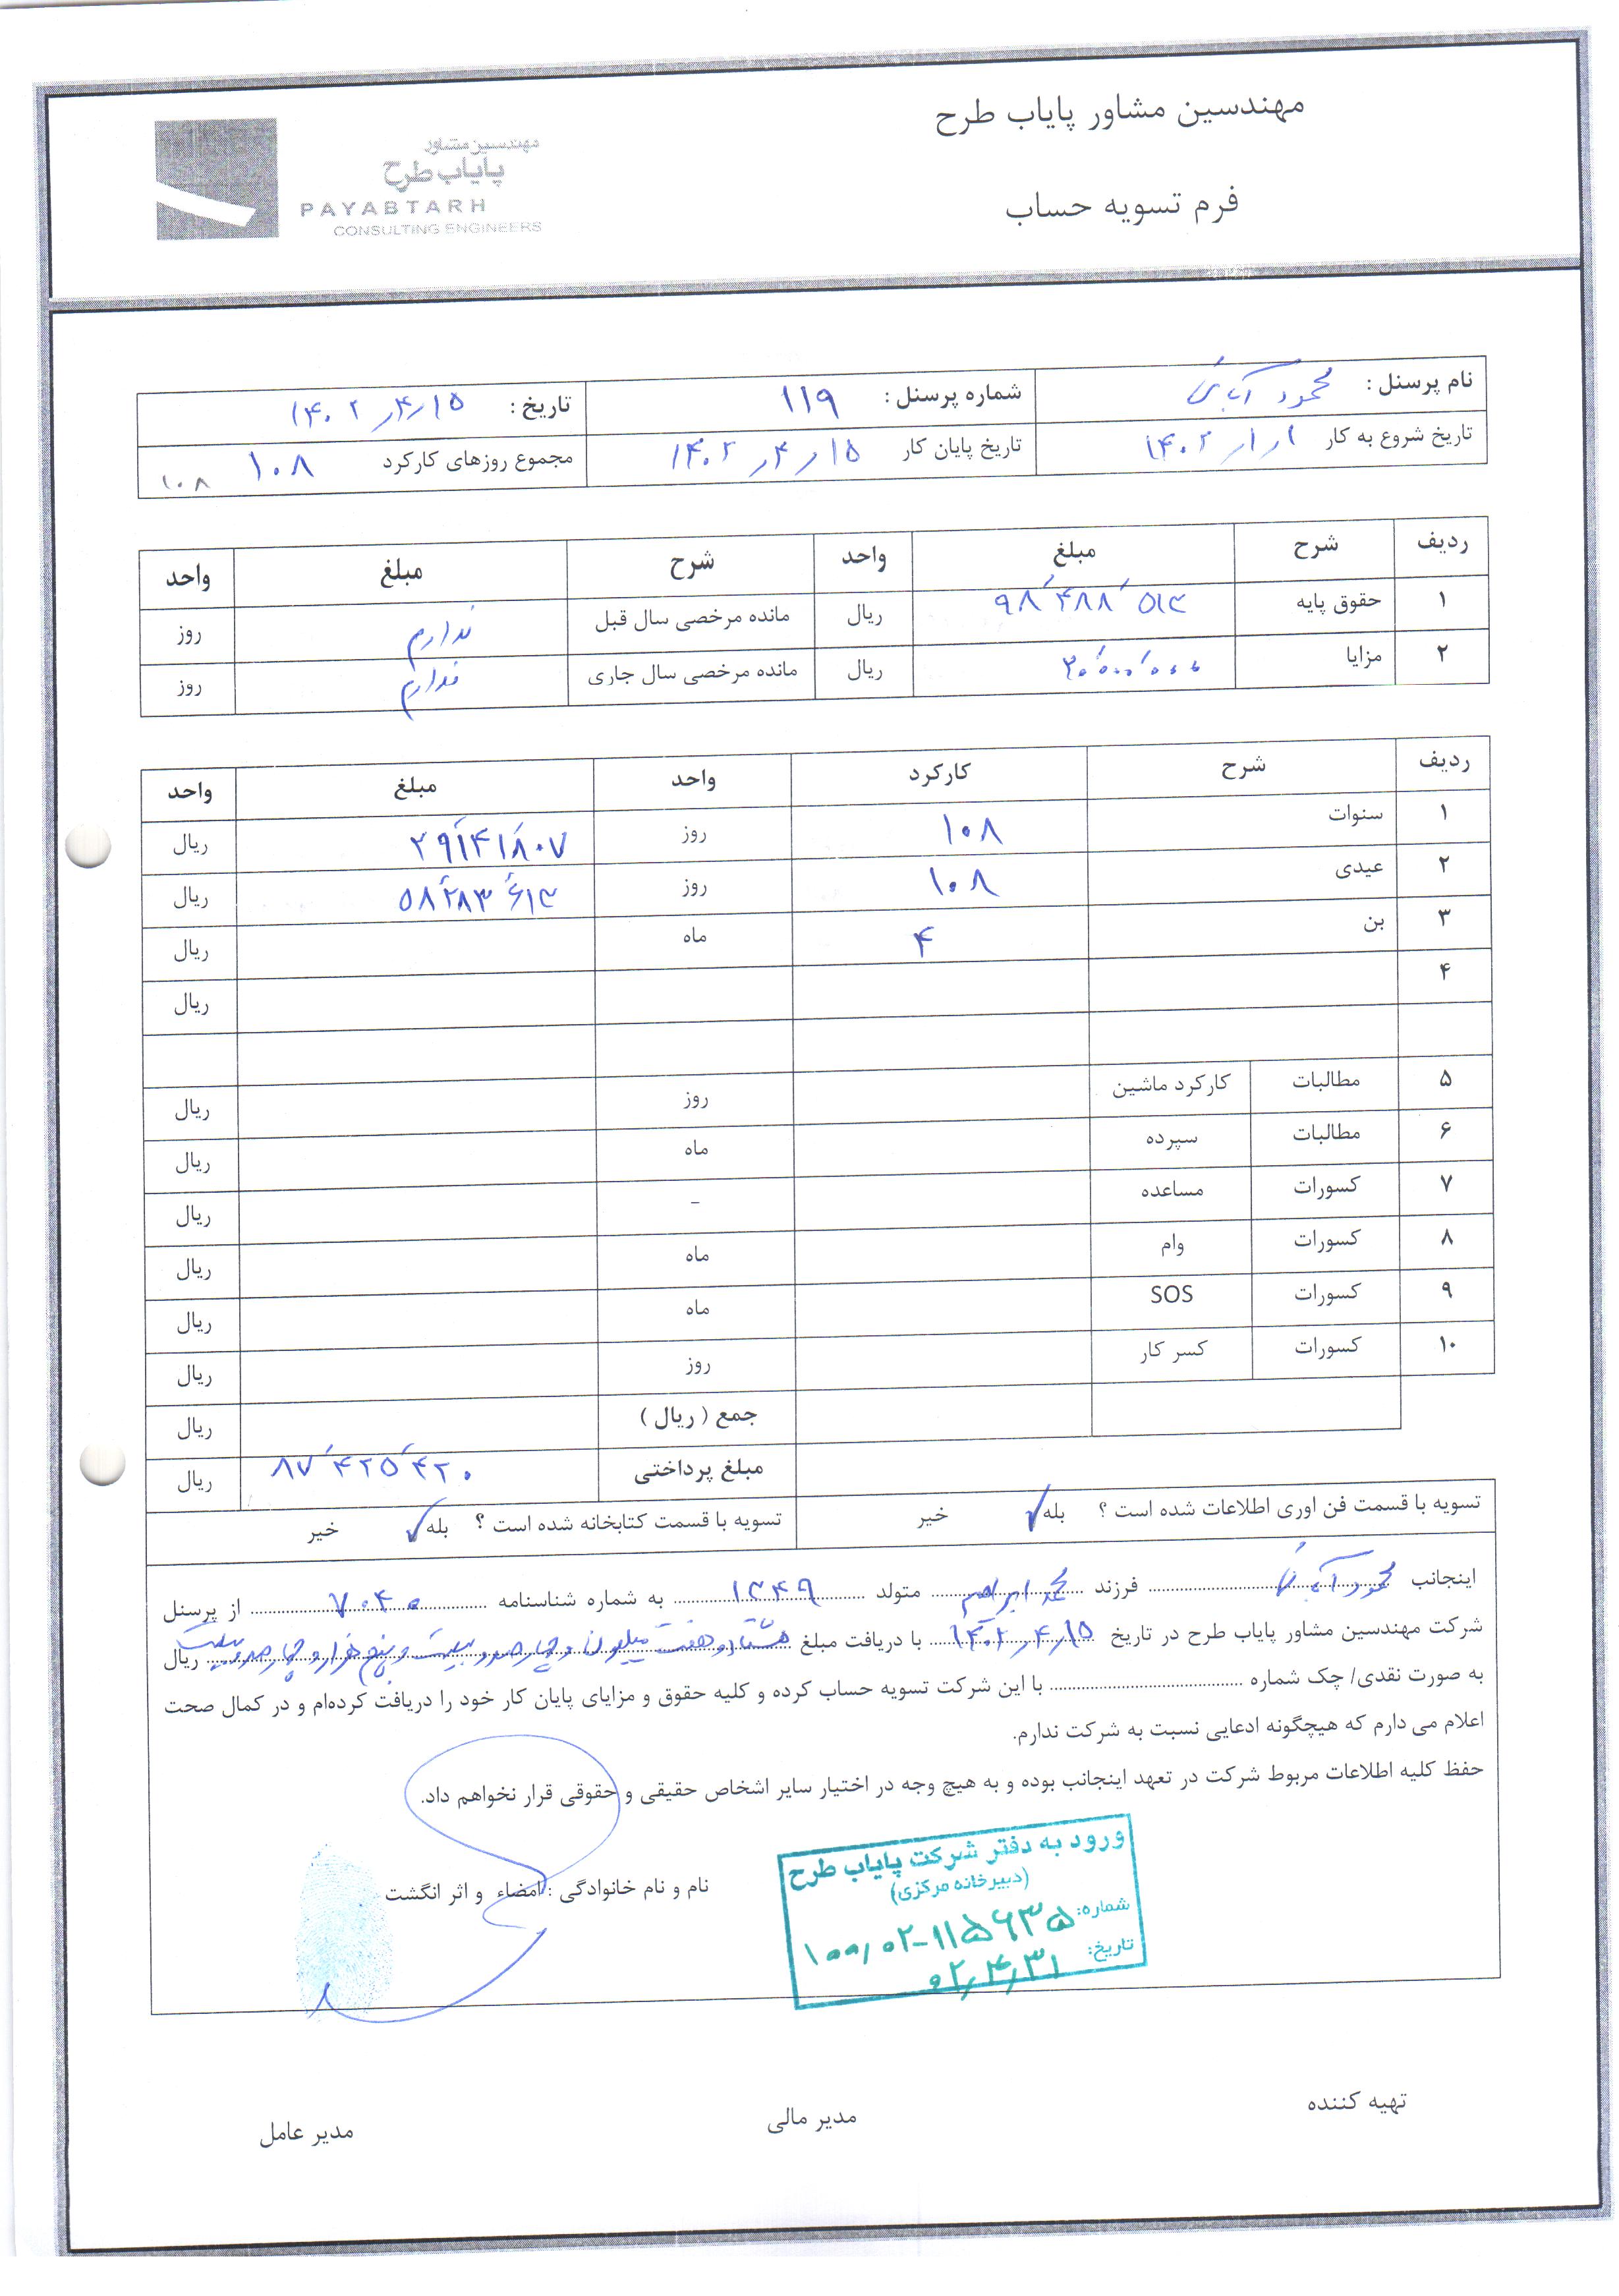 مهندسین مشاور پایاب طرح
مهندسین مشاور
پایاب طرح
PAYABTARH
CONSULTING ENGINEERS
فرم تسویه حساب
نام پرسنل : محمود شماره پرسنل : ۱۱۹ تاریخ : ۱۴۰۲/۴/۱۵
تاریخ شروع به کار ۱۴۰۲/۱/۱ تاریخ پایان کار ۱۴۰۲/۴/۱۵ مجموع روزهای کارکرد ۱۰۸ ۱۰۸
ردیف شرح مبلغ واحد شرح مبلغ واحد
۱ حقوق پایه ۹۸٬۴۸۸٬۵۱۳ ریال مانده مرخصی سال قبل ندارم روز
۲ مزایا ۲۰٬۰۰۰٬۰۰۰ ریال مانده مرخصی سال جاری ندارم روز
ردیف شرح کارکرد واحد مبلغ واحد
۱ سنوات ۱۰۸ روز ۲۹٬۱۴۱٬۸۰۷ ریال
۲ عیدی ۱۰۸ روز ۵۸٬۲۸۳٬۶۱۳ ریال
۳ بن ۴ ماه ریال
۴ ریال
۵ مطالبات کارکرد ماشین روز ریال
۶ مطالبات سپرده ماه ریال
۷ کسورات مساعده - ریال
۸ کسورات وام ماه ریال
۹ کسورات SOS ماه ریال
۱۰ کسورات کسر کار روز ریال
جمع ( ریال ) ریال
مبلغ پرداختی ۸۷٬۴۲۵٬۴۲۰ ریال
تسویه با قسمت فن اوری اطلاعات شده است ؟ بله ✓ خیر تسویه با قسمت کتابخانه شده است ؟ بله ✓ خیر
اینجانب محمود فرزند محمد ابراهیم متولد ۱۳۴۹ به شماره شناسنامه ۷۰۴۰ از پرسنل
شرکت مهندسین مشاور پایاب طرح در تاریخ ۱۴۰۲/۴/۱۵ با دریافت مبلغ هشتاد و هفت میلیون و چهارصد و بیست و پنج هزار و چهارصد و بیست ریال
به صورت نقدی/ چک شماره ........ با این شرکت تسویه حساب کرده و کلیه حقوق و مزایای پایان کار خود را دریافت کرده‌ام و در کمال صحت
اعلام می دارم که هیچگونه ادعایی نسبت به شرکت ندارم.
حفظ کلیه اطلاعات مربوط شرکت در تعهد اینجانب بوده و به هیچ وجه در اختیار سایر اشخاص حقیقی و حقوقی قرار نخواهم داد.
نام و نام خانوادگی : امضاء و اثر انگشت
ورود به دفتر شرکت پایاب طرح
(دبیرخانه مرکزی)
شماره: ۱۰۰/۰۲-۱۱۵۶۳۵
تاریخ: ۰۲/۴/۳۱
تهیه کننده مدیر مالی مدیر عامل